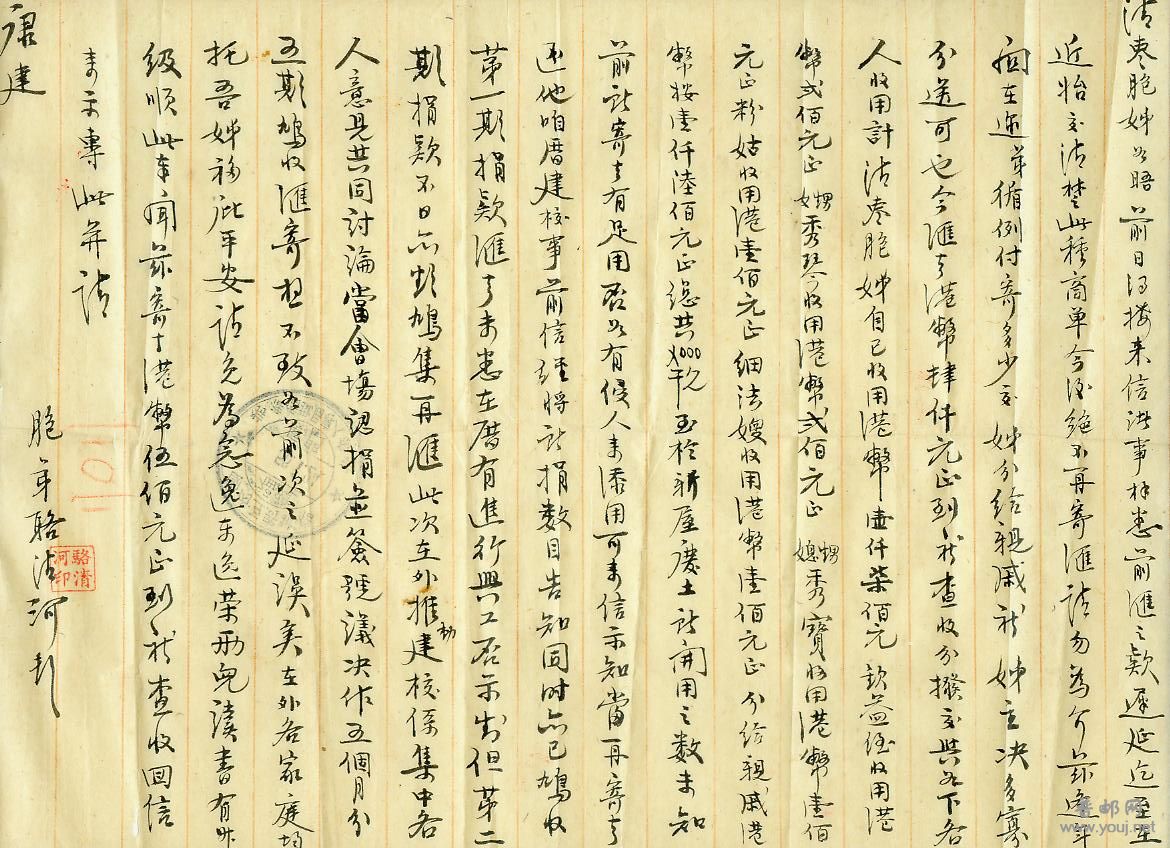 清枣胞姊如晤 前日得接来信諸事祥悉前匯之款遲延迄至
近怡交清楚此種商单今後絶不再寄匯請勿為介兹逢年
関在邇弟循例付寄多少交 姊分給親戚祈 姊主决多寡
分送可也今匯去港幣肆仟元正到祈查收分撥交與如下各
人收用計 清枣胞姊自己收用港幣壹仟柒佰元 欽益侄收用港
幣弍佰元正 甥媳秀琴收用港幣弍佰元正 甥媳秀寶收用港幣壹佰
元正 粉姑收用港壹佰元正 細法嫂收用港幣壹佰元正 分给親戚港
幣按壹仟陸佰元正總共4000元 至於新屋慶土祈開用之数未知
前祈寄去有足用否如有候人来添用可来信示知當再寄去
还他咱厝建校事前信經將祈捐数目告知同时亦已鳩收
第一期捐款匯去未悉在厝有進行興工否示知但第二
期捐款不日亦欲鳩集再匯此次在外推動建校係集中各
人意見共同討論當會場認捐並簽號議决作五個月分
五期鳩收匯寄想不致如前次之延误矣在外各家庭均
托吾姊福庇平安請免為念逸东逸荣两兒讀書有升
級順此奉聞兹寄去港幣伍佰元正到祈查收回信
来示專此并請
康建
胞弟駱清河印
駱清河印
1101
香邮网
www.youj.net